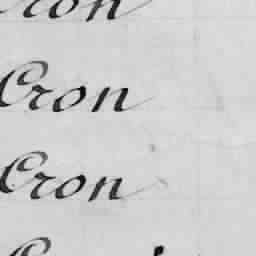 Cron
Cron
Cron